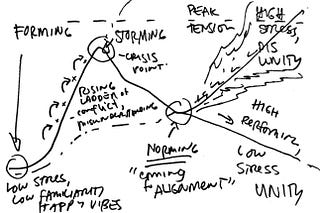 FORMING
STORMING
CRISIS
POINT
PEAK
TENSION
HIGH
STRESS,
DIS
UNITY
RISING
LADDER of
CONFLICT,
MISUNDERSTANDING
HIGH
PERFORMING
LOW
STRESS
UNITY
NORMING
"COMING
ALIGNMENT"
LOW STRESS,
LOW FAMILIARITY
HAPPY VIBES